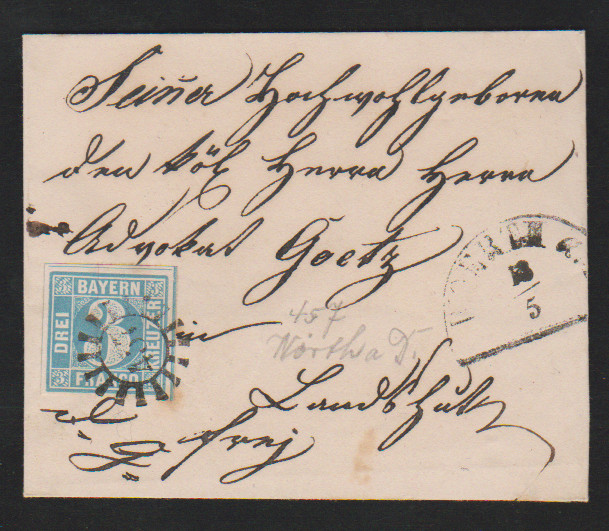 Seiner Hochwohlgeboren
den köl Herrn Herrn
Advokat Goetz
in
Landshut
frej
BAYERN
DREI
KREUZER
FRANCO
3
13
5
457
Wörth a D.